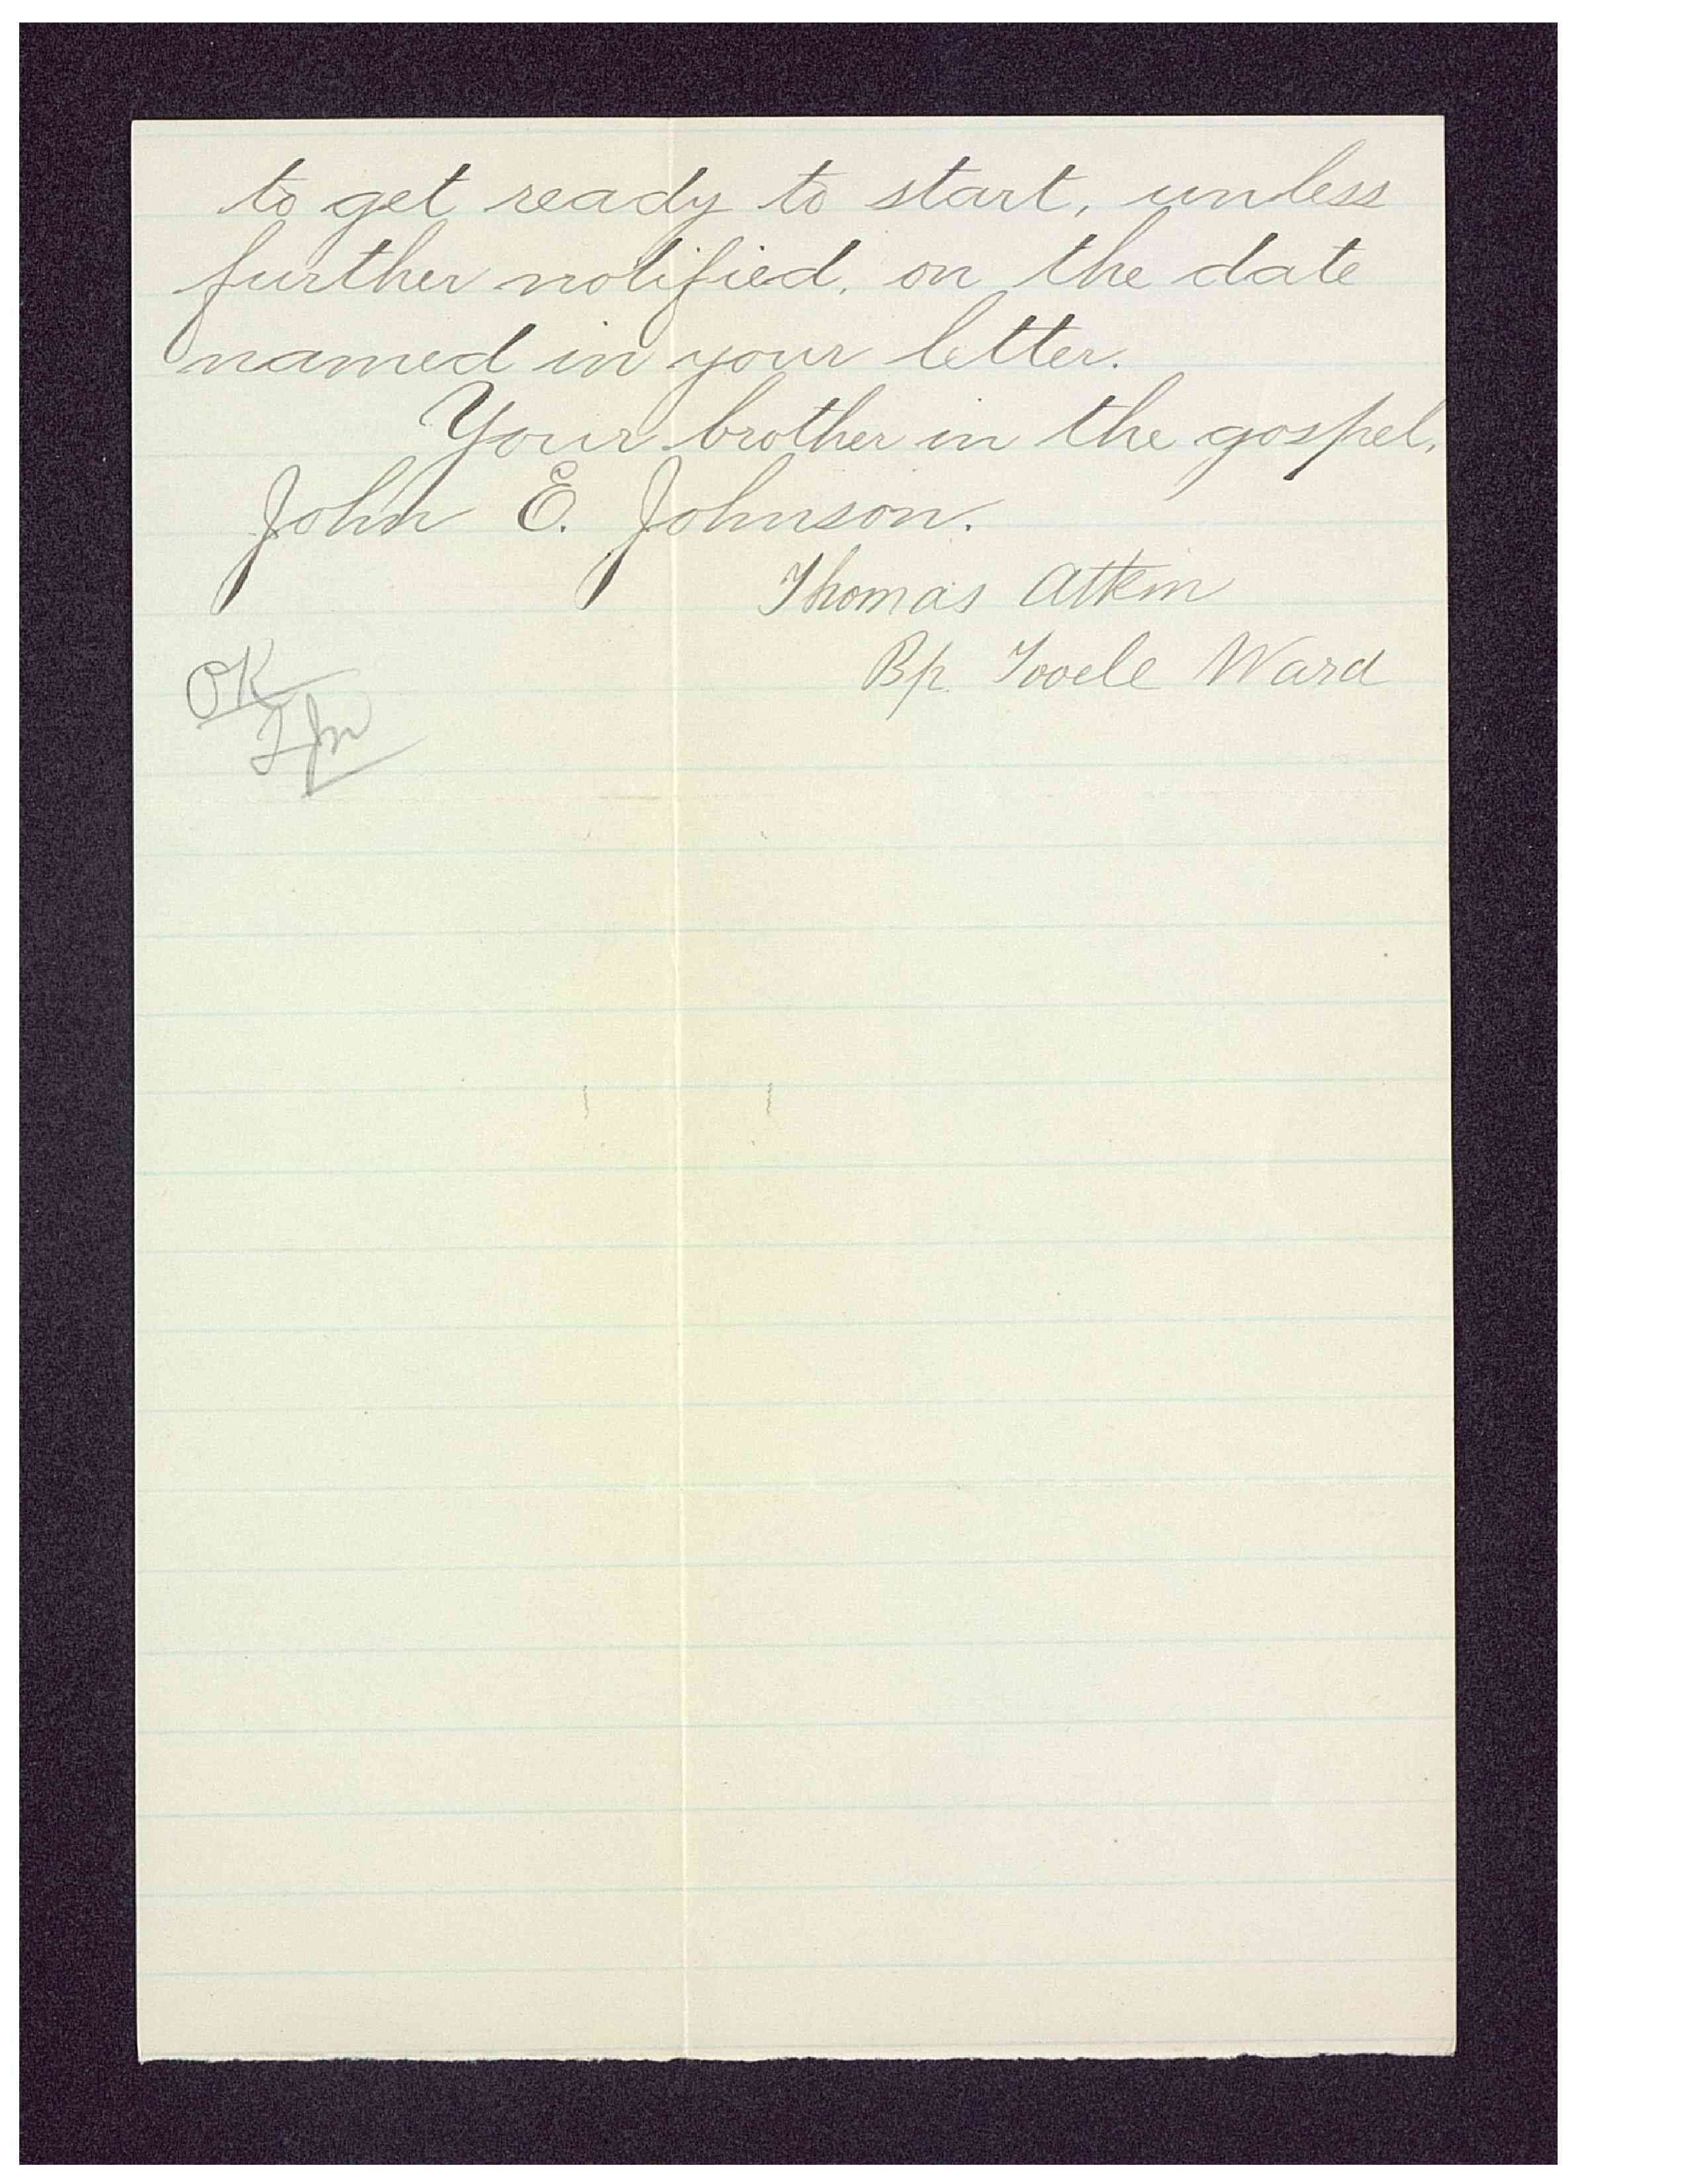 to get ready to start, unless
further notified, on the date
named in your letter.
Your brother in the gospel,
John E. Johnson.
Thomas Atkin
Bp. Tooele Ward
OK